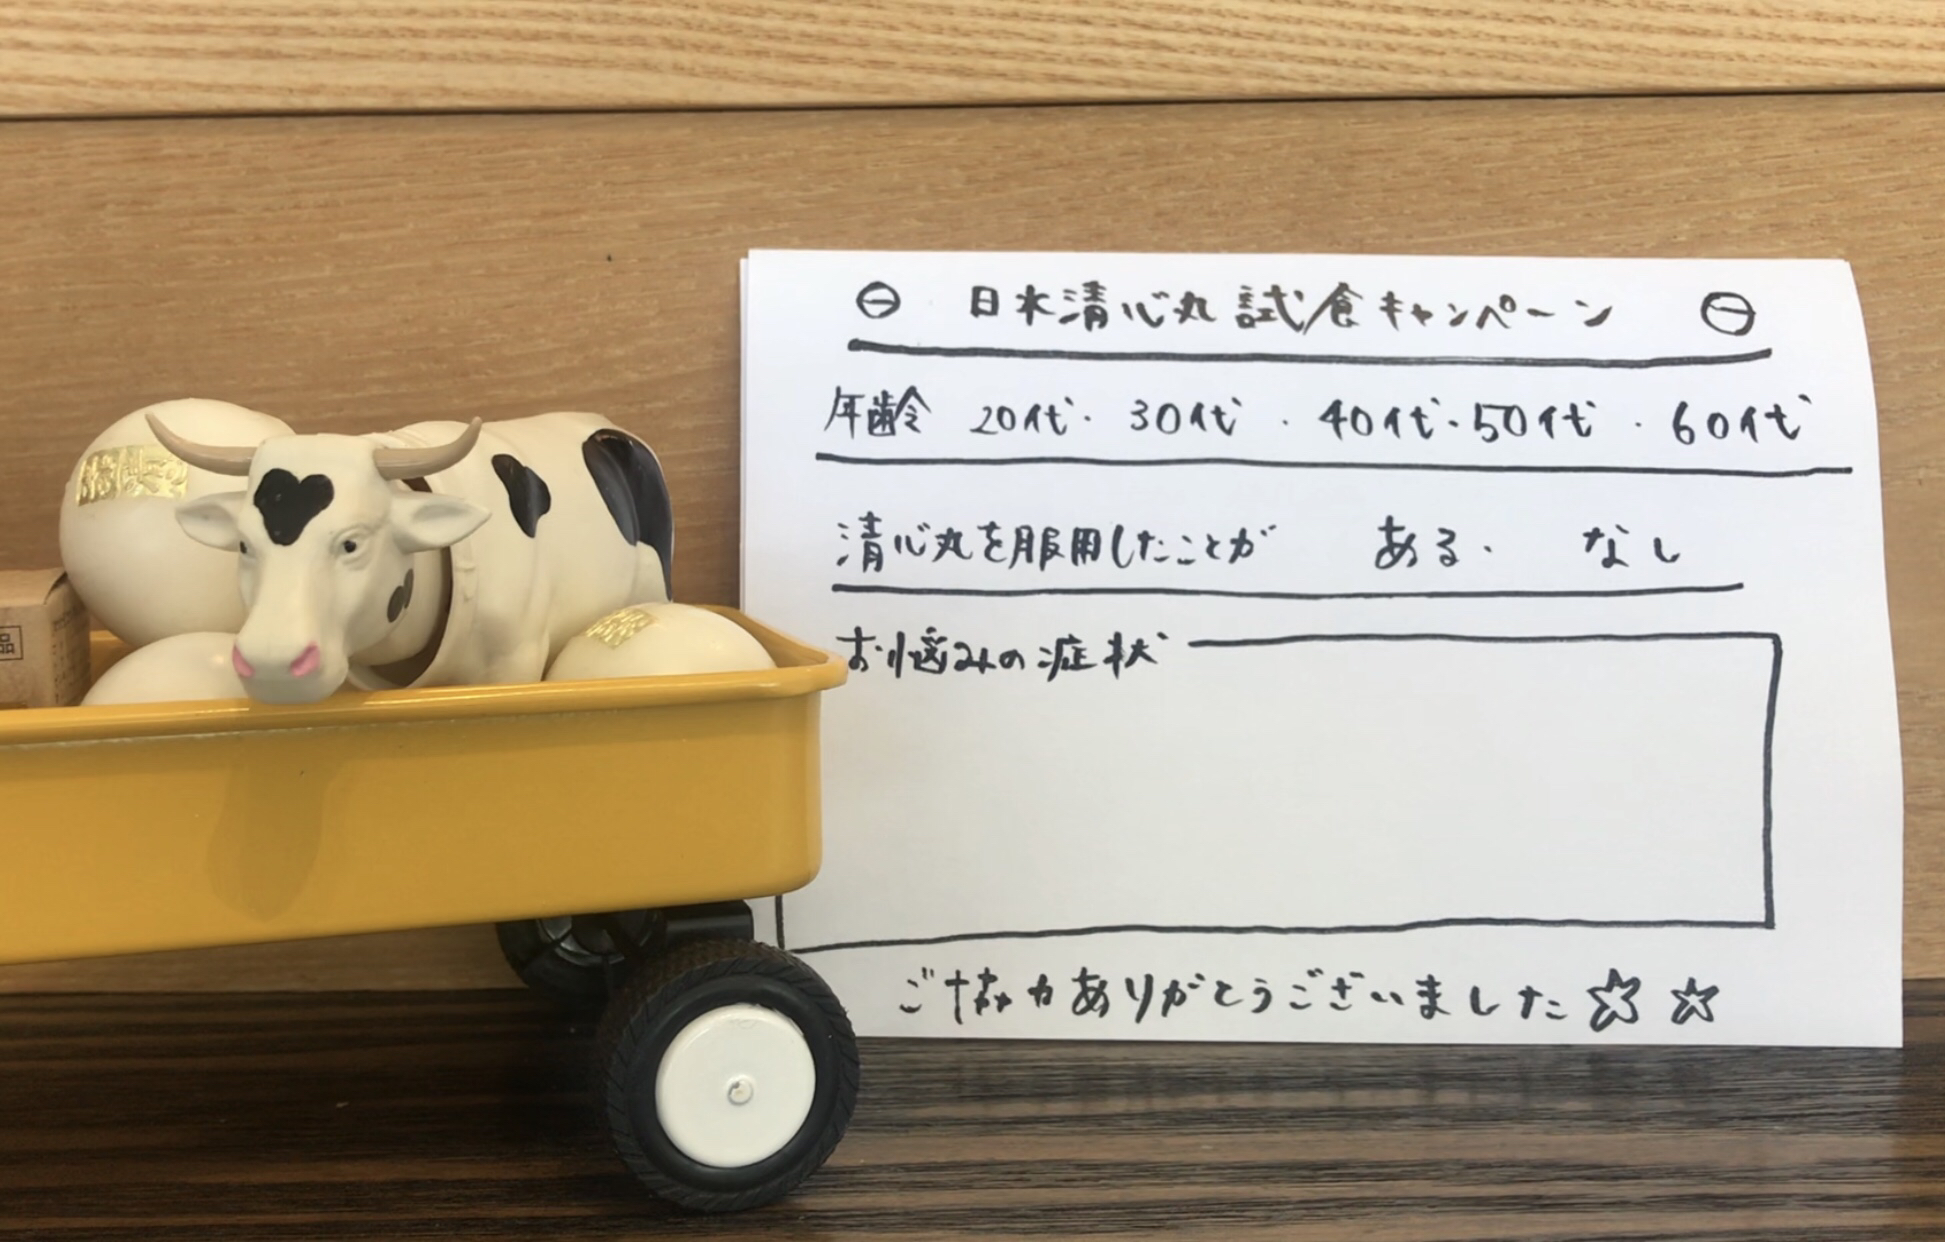 日水清心丸 試食キャンペーン
年齢 20代・30代・40代・50代・60代
清心丸を服用したことが ある・ なし
お悩みの症状
ご協力ありがとうございました☆☆
品